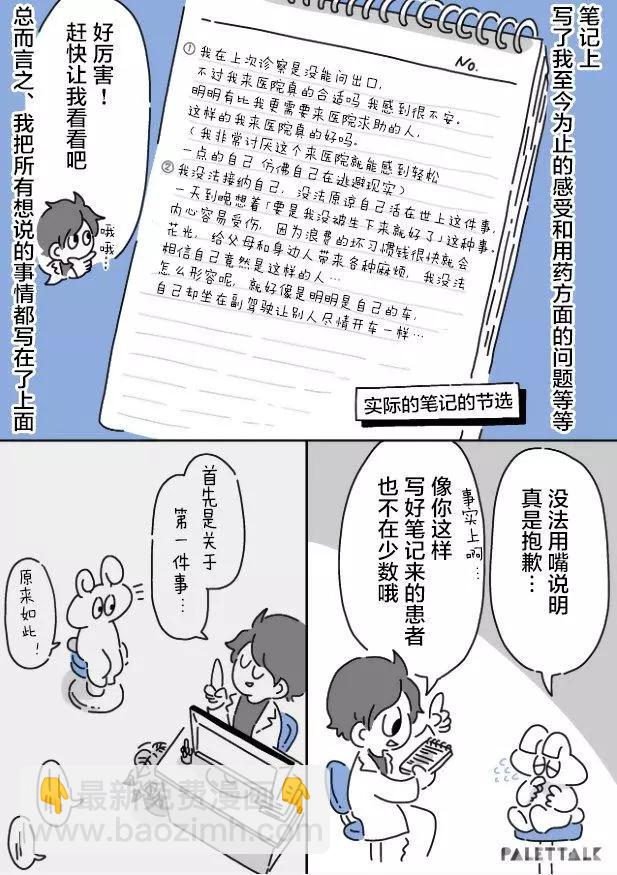 笔记上
写了我至今为止的感受和用药方面的问题等等
No.
①我在上次诊察是没能问出口,
不过我来医院真的合适吗 我感到很不安。
明明有比我更需要来医院求助的人,
这样的我来医院真的好吗。
(我非常讨厌这个来医院就能感到轻松
一点的自己 仿佛自己在逃避现实)
②我没法接纳自己,没法原谅自己活在世上这件事,
一天到晚想着「要是我没被生下来就好了」这种事。
内心容易受伤,因为浪费的坏习惯钱很快就会
花光,给父母和身边人带来各种麻烦,我没法
相信自己竟然是这样的人…
怎么形容呢,就好像是明明是自己的车,
自己却坐在副驾驶让别人尽情开车一样…
实际的笔记的节选
好厉害!
赶快让我看看吧
哦
哦…
总而言之、我把所有想说的事情都写在了上面
没法用嘴说明
真是抱歉…
事实上啊…
像你这样
写好笔记来的患者
也不在少数哦
首先是关于
第一件事…
原来如此!
最新免费漫画
www.baozimh.com
PALETTALK